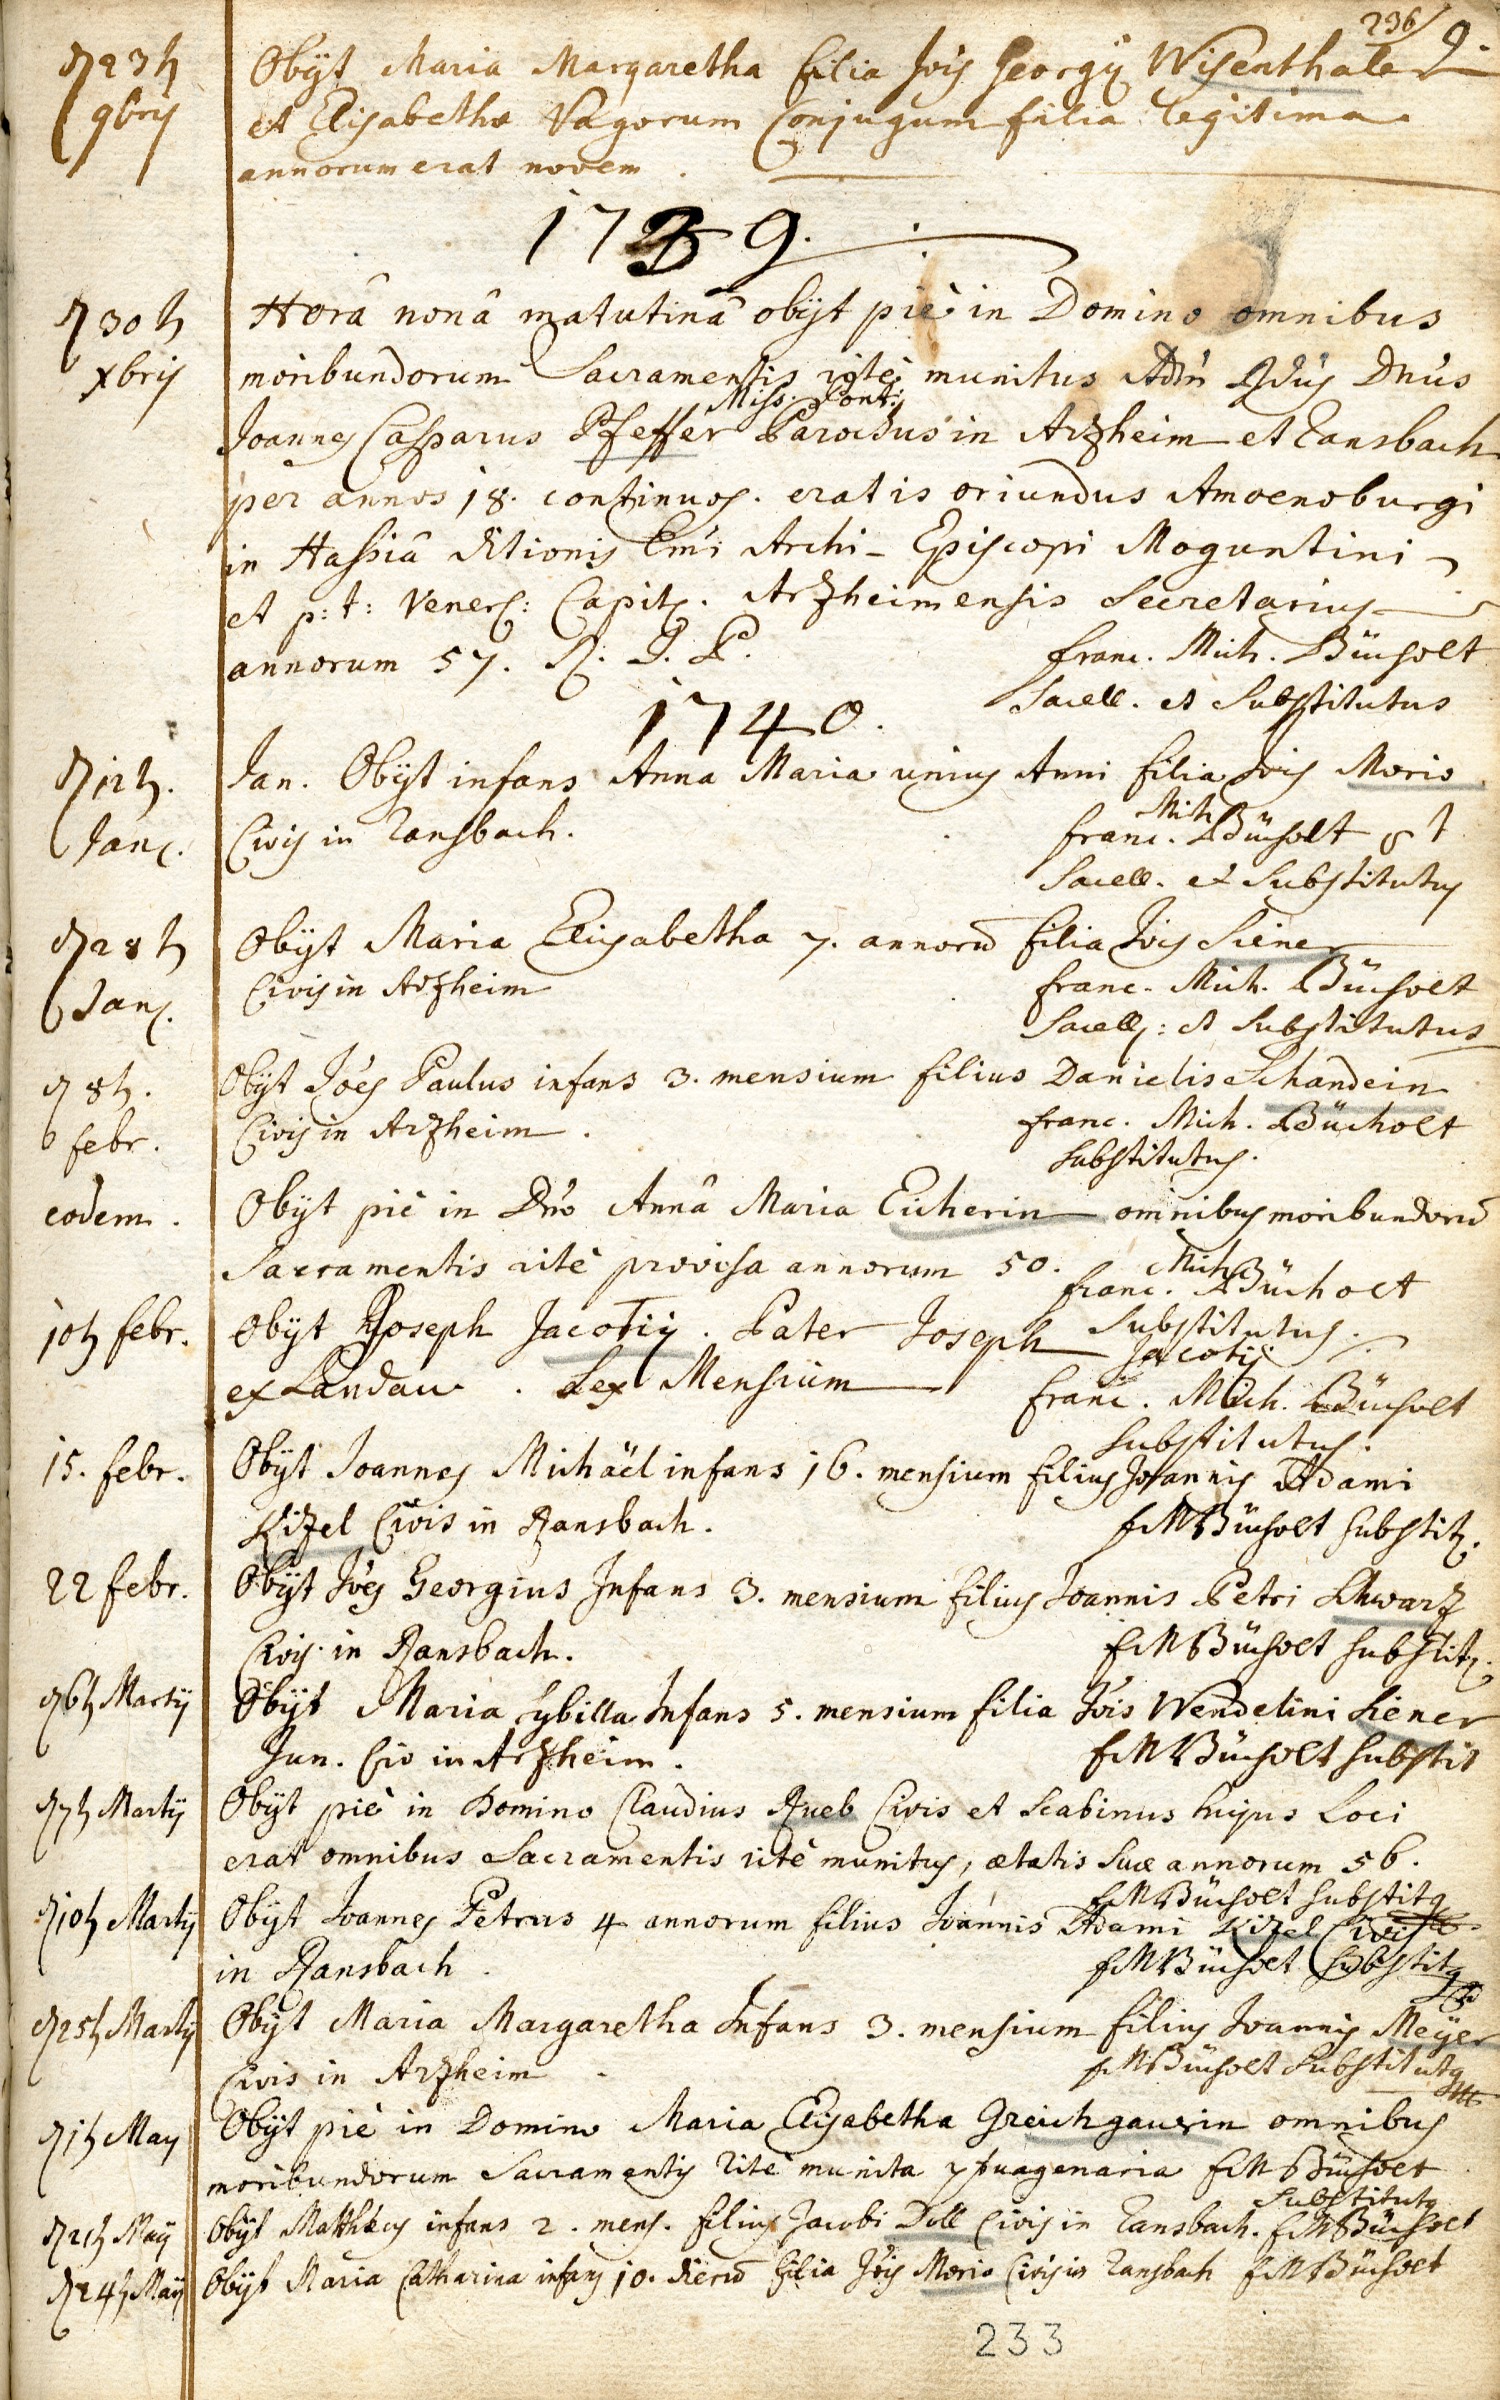 236 9.
d 23t
9bris
Obijt Maria Margaretha filia Jois Georgij Wisenthaler
et Elisabethæ Vagorum Conjugum filia legitima.
annorum erat novem.
1739.
d 30t
xbris
Horâ nonâ matutinâ obijt piè in Domino omnibus
moribundorum Sacramentis ritè munitus Adm Rdus Dnus
Miss. Cont:
Joannes Casparus Pfeffer Parochus in Arzheim et Ransbach
per annos 18. continuos. erat is oriundus Amoenoburgi
in Hassiâ ditionis Emi Archi- Episcopi Moguntini
et p: t: Vener: Capit. Arzheimensis Secretarius
annorum 57. R. I. P.
franc. Mich. Bücholt
Sacell. et Substitutus
1740.
d 12t.
Jan.
Jan. Obijt infans Anna Maria unius Anni filia Jois Morio
Civis in Ransbach.
franc. Mich Bücholt
Sacell. et Substitutus
d 28t
Jan.
Obijt Maria Elisabetha 7. annorū filia Jois Siener
Civis in Arzheim
franc. Mich. Bücholt
Sacell: et Substitutus
d 8t.
febr.
Obijt Joes Paulus infans 3. mensium filius Danielis Schandein
Civis in Arzheim.
franc. Mich. Bücholt
Substitutus.
eodem.
Obijt piè in Dno Annâ Maria Eicherin omnibus moribundorū
Sacramentis ritè provisa annorum 50.
franc. Mich Bücholt
Substitutus.
10t febr.
Obijt Joseph Jacotij. Pater Joseph Jacotij
ex Landau. Sex Mensium
franc. Mich. Bücholt
Substitutus.
15. febr.
Obijt Joannes Michäel infans 16. mensium filius Joannis Adami
Kizel Civis in Ransbach.
FMBücholt Substit.
22 febr.
Obijt Joes Georgius Infans 3. mensium filius Joannis Petri Schwarz
Civis in Ransbach.
FMBücholt Substit.
d 6t Martij
Obijt Maria Sybilla Infans 5. mensium filia Jois Wendelini Siener
Jun. Civ in Arzheim.
FMBücholt Substit
d 7t Martij
Obijt piè in Domino Claudius Rueb Civis et Scabinus hujus Loci
erat omnibus Sacramentis ritè munitus, ætatis suæ annorum 56.
FMBücholt Substit
d 10t Martij
Obijt Joannes Petrus 4 annorum filius Joannis Adami Kizel Civis
in Ransbach.
FMBücholt Substit
d 25t Martij
Obijt Maria Margaretha Infans 3. mensium filius Joannis Meÿer
Civis in Arzheim.
FMBücholt Substitut
d 1t May
Obijt piè in Domino Maria Elisabetha Greichgauerin omnibus
moribundorum Sacramentis ritè munita FMBücholt
Substitut
d 21t Maij
Obijt Matthæus infans 2. mens. filius Jacobi Doll Civis in Ransbach. FMBücholt
d 24t Maij
Obijt Maria Catharina infans 10. dierū filia Jois Morio Civis in Ransbach FMBücholt
233